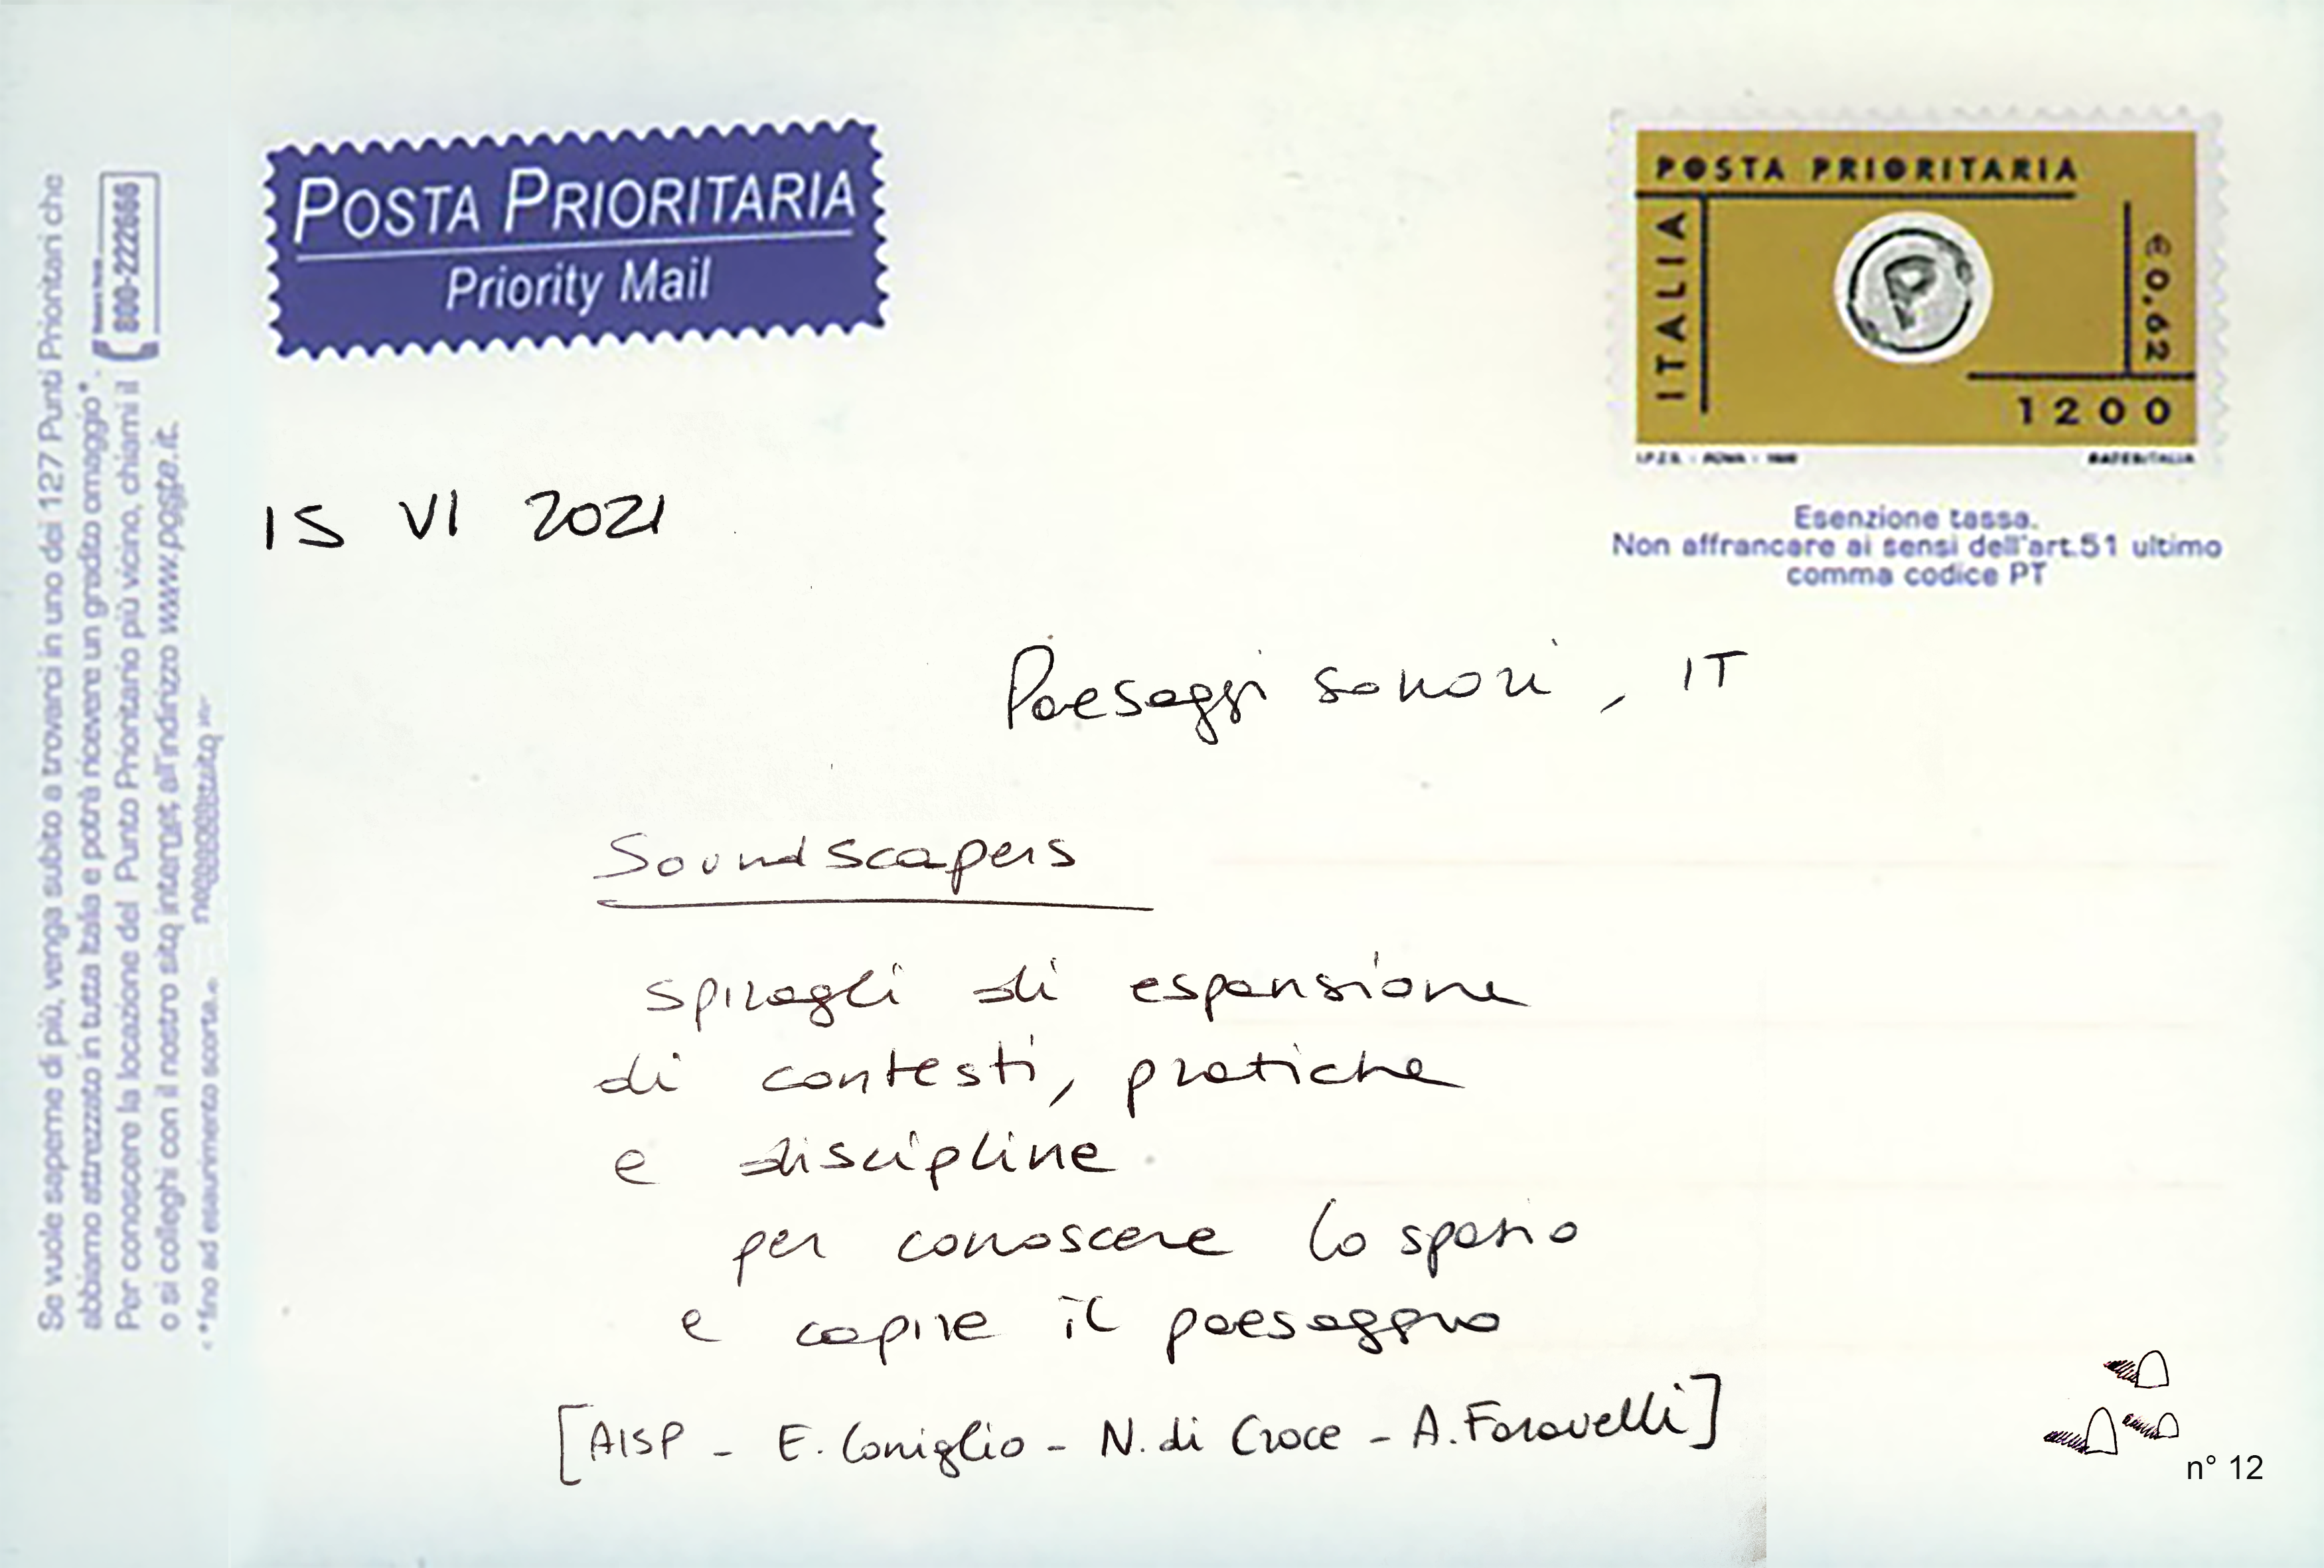 POSTA PRIORITARIA
Priority Mail
POSTA PRIORITARIA
ITALIA
€ 0,62
1200
I.P.Z.S. - ROMA -
Esenzione tassa.
Non affrancare ai sensi dell'art.51 ultimo
comma codice PT
15 VI 2021
Paesaggi sonori, IT
Soundscapers
spiragli di espansione
di contesti, pratiche
e discipline
per conoscere lo spazio
e capire il paesaggio
[AISP - E. Coniglio - N. di Croce - A. Faravelli]
n° 12
Se vuole saperne di più, venga subito a trovarci in uno dei 127 Punti Prioritari che
abbiamo attrezzato in tutta Italia e potrà ricevere un gradito omaggio*.
Per conoscere la locazione del Punto Prioritario più vicino, chiami il 800-222666
o si colleghi con il nostro sito internet all'indirizzo www.poste.it.
*fino ad esaurimento scorte.